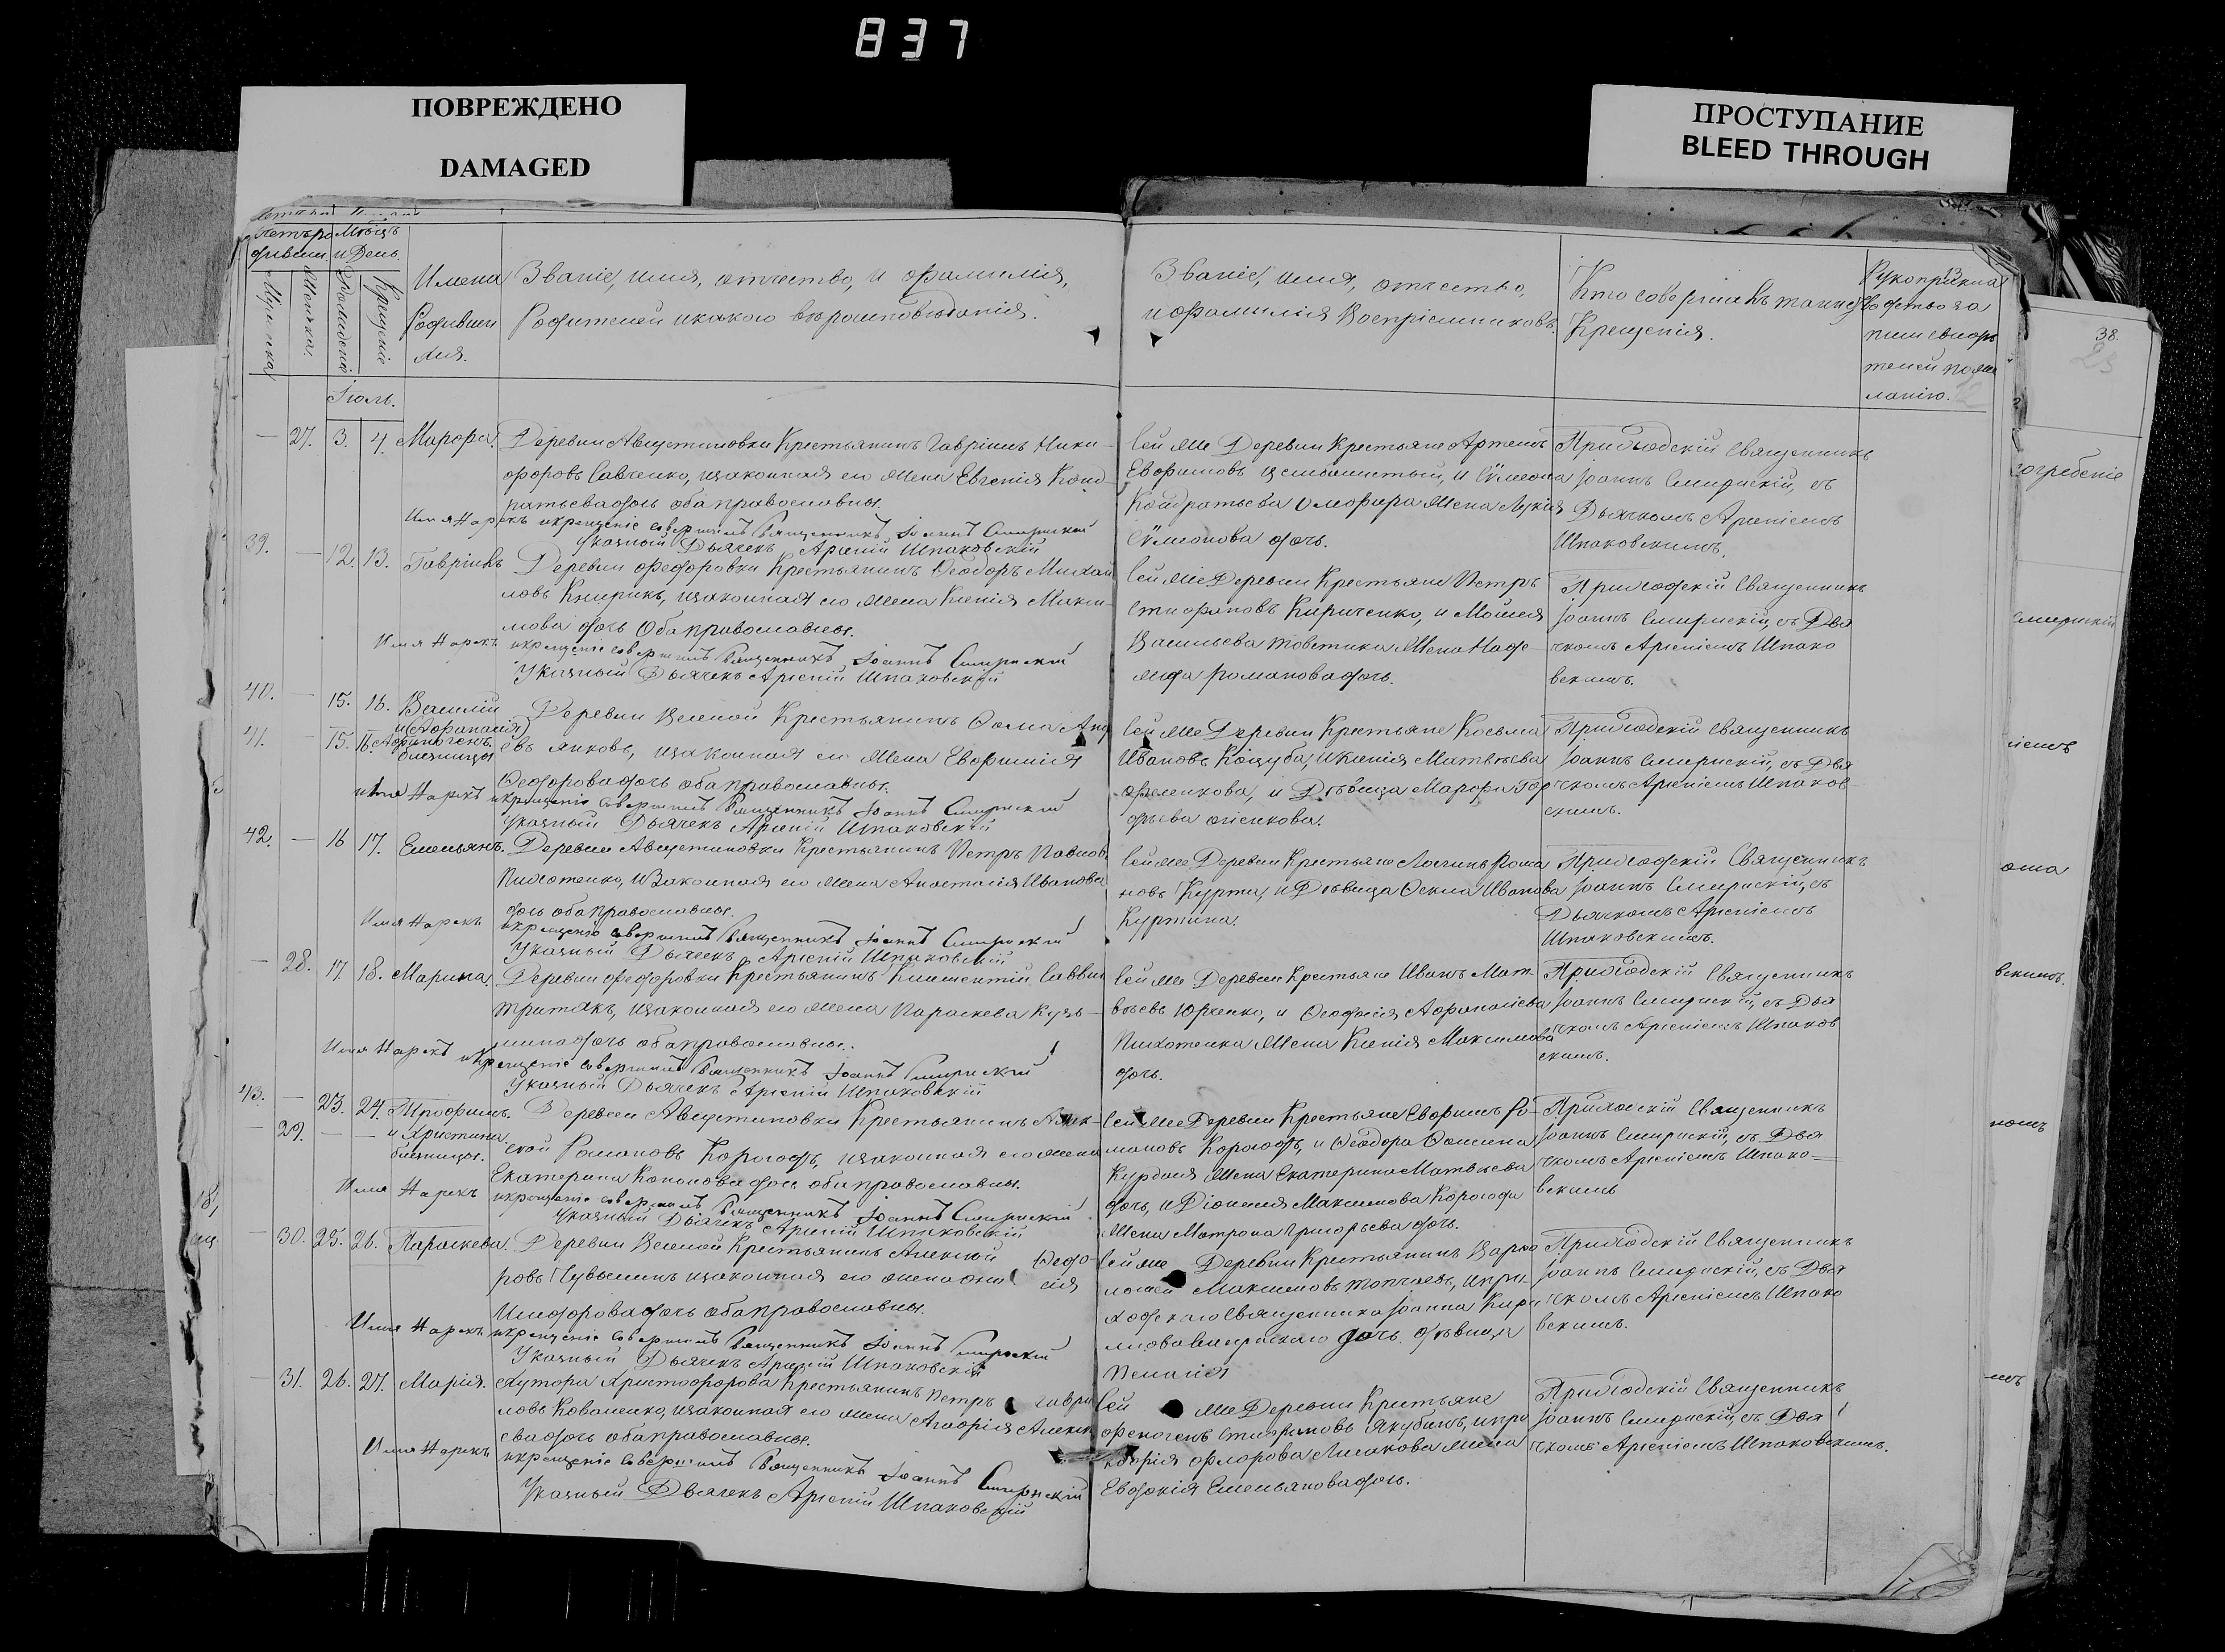 837
ПОВРЕЖДЕНО
DAMAGED
ПРОСТУПАНИЕ
BLEED THROUGH
38.
13
Мѣсяцъ
и День.
Имена
Родивши
хся.
Званіе, имя, отчество, и фамилія,
Родителей икакого вѣроисповѣданія.
Званіе, имя, отчество,
ифамилія Воспріемниковъ.
Кто совершалъ таинство
Крещенія.
Рукоприкла
дство за
писи свидѣ
телей поже
ланію.
Іюль.
27. 3. 4. Марфа.
Деревни Августиновки Крестьянинъ Гавріилъ Ники-
форовъ Савченко, изаконная его жена Евгенія Конд-
ратьева дочь оба православны.
Имя Нарекъ икрещеніе совершилъ Священникъ Іоаннъ Смирнскій
Указный Дьячекъ Арсеній Шпаковскій
Сей же Деревни Крестьяне Артемъ
Кондратьева жена Лукія
Сѵмеонова дочь.
Приходскій Священникъ
Іоаннъ Смирнскій, съ
Дьячкомъ Арсеніемъ
Шпаковскимъ.
39. 12. 13. Гавріилъ
Деревни Федоровки Крестьянинъ Ѳеодоръ Михай
ловъ Кнырикъ, изаконная его жена Ксенія Макси-
мова дочь Оба православны.
Имя Нарекъ икрещеніе совершилъ Священникъ Іоаннъ Смирнскій
Указный Дьячекъ Арсеній Шпаковскій
Сей же Деревни Крестьяне Петръ
Стефановъ Кириченко, и Моисея
Васильева Товстика жена
Романова дочь.
Приходскій Священникъ
Іоаннъ Смирнскій, съ Дья
чкомъ Арсеніемъ Шпако
вскимъ.
40. 15. 16. Василій
41. 15. 16.
близнецы
Деревни Веселой Крестьянинъ Ѳома
изаконная его жена Евфимія
Ѳеодорова дочь оба православны.
имя Нарекъ икрещеніе совершилъ Священникъ Іоаннъ Смирнскій
Указный Дьячекъ Арсеній Шпаковскій
Сей же Деревни Крестьяне Косьма
Ивановъ Коцуба, иКсенія Матвѣева
и Дѣвица Марфа Гор
дѣева
Приходскій Священникъ
Іоаннъ Смирнскій, съ Дья
чкомъ Арсеніемъ Шпаков-
скимъ.
42. 16 17. Емельянъ.
Деревни Августиновки Крестьянинъ Петръ Павловъ
Пихотенко, иЗаконная его жена Анастасія Иванова
дочь оба православны.
Имя Нарекъ икрещеніе совершилъ Священникъ Іоаннъ Смирнскій
Указный Дьячекъ Арсеній Шпаковскій
Сей же Деревни Крестьяне Логинъ Рома
новъ Курта, и Дѣвица Ѳекла Иванова
Куртина.
Приходскій Священникъ
Іоаннъ Смирнскій, съ
Дьячкомъ Арсеніемъ
Шпаковскимъ.
28. 17 18. Марина.
Деревни Федоровки Крестьянинъ Климентій Саввинъ
Тритякъ, изаконная его жена Параскева Кузь-
мина дочь оба православны.
Имя Нарекъ икрещеніе совершилъ Священникъ Іоаннъ Смирнскій
Указный Дьячекъ Арсеній Шпаковскій
Сей же Деревни Крестьяне Иванъ Мат-
вѣевъ Юрченко, и Ѳеодосія Афанасіева
Пихотенка жена Ксенія Максимова
дочь.
Приходскій Священникъ
Іоаннъ Смирнскій, съ Дья
чкомъ Арсеніемъ Шпаков
скимъ.
43. 23. 24. Трофимъ.
29. и Христина
близнецы.
Деревни Августиновки Крестьянинъ Алек-
сѣй Романовъ Корогодъ, изаконная его жена
Екатерина Кононова дочь оба православны.
Имя Нарекъ икрещеніе совершилъ Священникъ Іоаннъ Смирнскій
Указный Дьячекъ Арсеній Шпаковскій
Сей же Деревни Крестьяне Евфимъ Ро-
мановъ Корогодъ, и Ѳеодора Ѳомина
жена Екатерина Матвѣева
дочь, и Діонисія Максимова Корогода
жена Матрона Григорьева дочь.
Приходскій Священникъ
Іоаннъ Смирнскій, съ Дья
чкомъ Арсеніемъ Шпако-
вскимъ
30. 25. 26. Параскева.
Деревни Веселой Крестьянинъ Алексѣй Ѳедо-
ровъ изаконная его жена
дочь оба православны.
Имя Нарекъ икрещеніе совершилъ Священникъ Іоаннъ Смирнскій
Указный Дьячекъ Арсеній Шпаковскій
Сей же Деревни Крестьянинъ Варфо
ломей Максимовъ Топчаевъ, ипри-
ходскаго Священника Іоанна Кири
лова Смирнскаго дочь дѣвица
Приходскій Священникъ
Іоаннъ Смирнскій, съ Дья
чкомъ Арсеніемъ Шпако
вскимъ.
31. 26. 27. Марія.
Хутора Христофорова Крестьянинъ Петръ Гаври
ловъ Коваленко, изаконная его жена Агафія Алексѣ
ева дочь оба православны.
Имя Нарекъ икрещеніе совершилъ Священникъ Іоаннъ Смирнскій
Указный Дьячекъ Арсеній Шпаковскій
Сей же Деревни Крестьяне
Стефановъ Якубинъ,
Флорова Лисакова жена
Евдокія Емельянова дочь.
Приходскій Священникъ
Іоаннъ Смирнскій, съ Дья
чкомъ Арсеніемъ Шпаковскимъ.